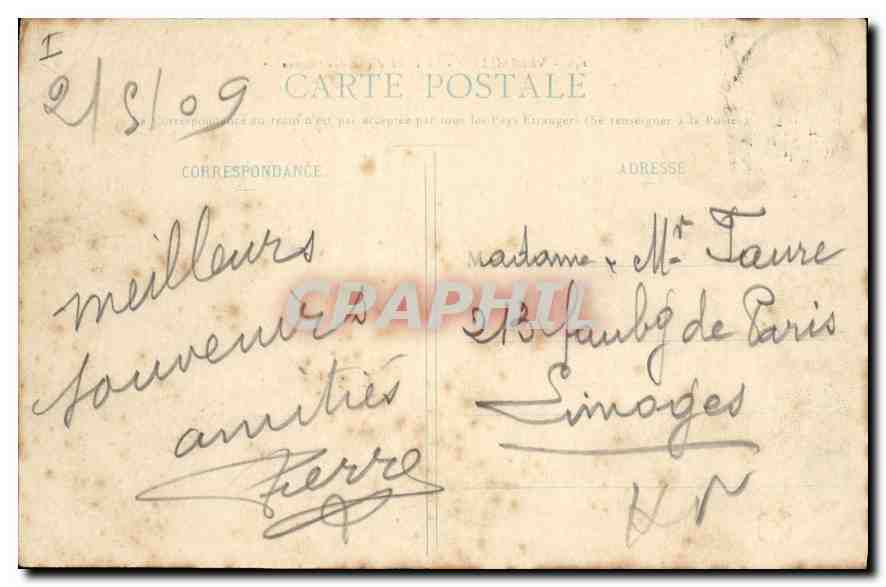 I
2/5/09
CARTE POSTALE
La Correspondance au recto n'est pas acceptée par tous les Pays Etrangers (Se renseigner à la Poste.)
CORRESPONDANCE
ADRESSE
meilleurs
souvenirs
amitiés
Pierre
Madame. Mr Faure
213 faubg de Paris
Limoges
CPAPHIL